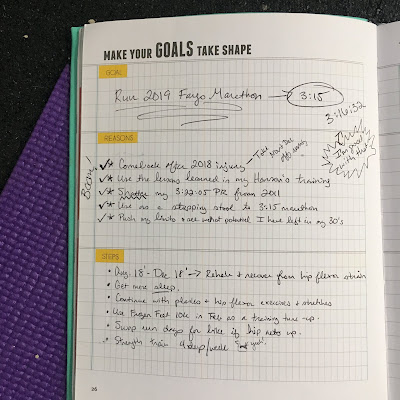 MAKE YOUR GOALS TAKE SHAPE
GOAL
Run 2019 Fargo Marathon → 3:15
3:16:32
REASONS
BOOM!
✓* Comeback after 2018 injury
✓* Use the lessons learned in my Hanson's training
✓* Shatter my 3:22:05 PR from
✓* Use as a stepping stool to 3:15 marathon
✓* Push my limits + see what potential I have left in my 30's
STEPS
• Aug. 18' - Dec 18' → Rehab + recover from hip flexor strain
• Get more sleep.
• Continue with pilates + hip flexor exercises & stretches
• Use Frozen Feet 10k in Feb as a training tune-up.
• Swap run days for bike if hip acts up.
• Strength train
26